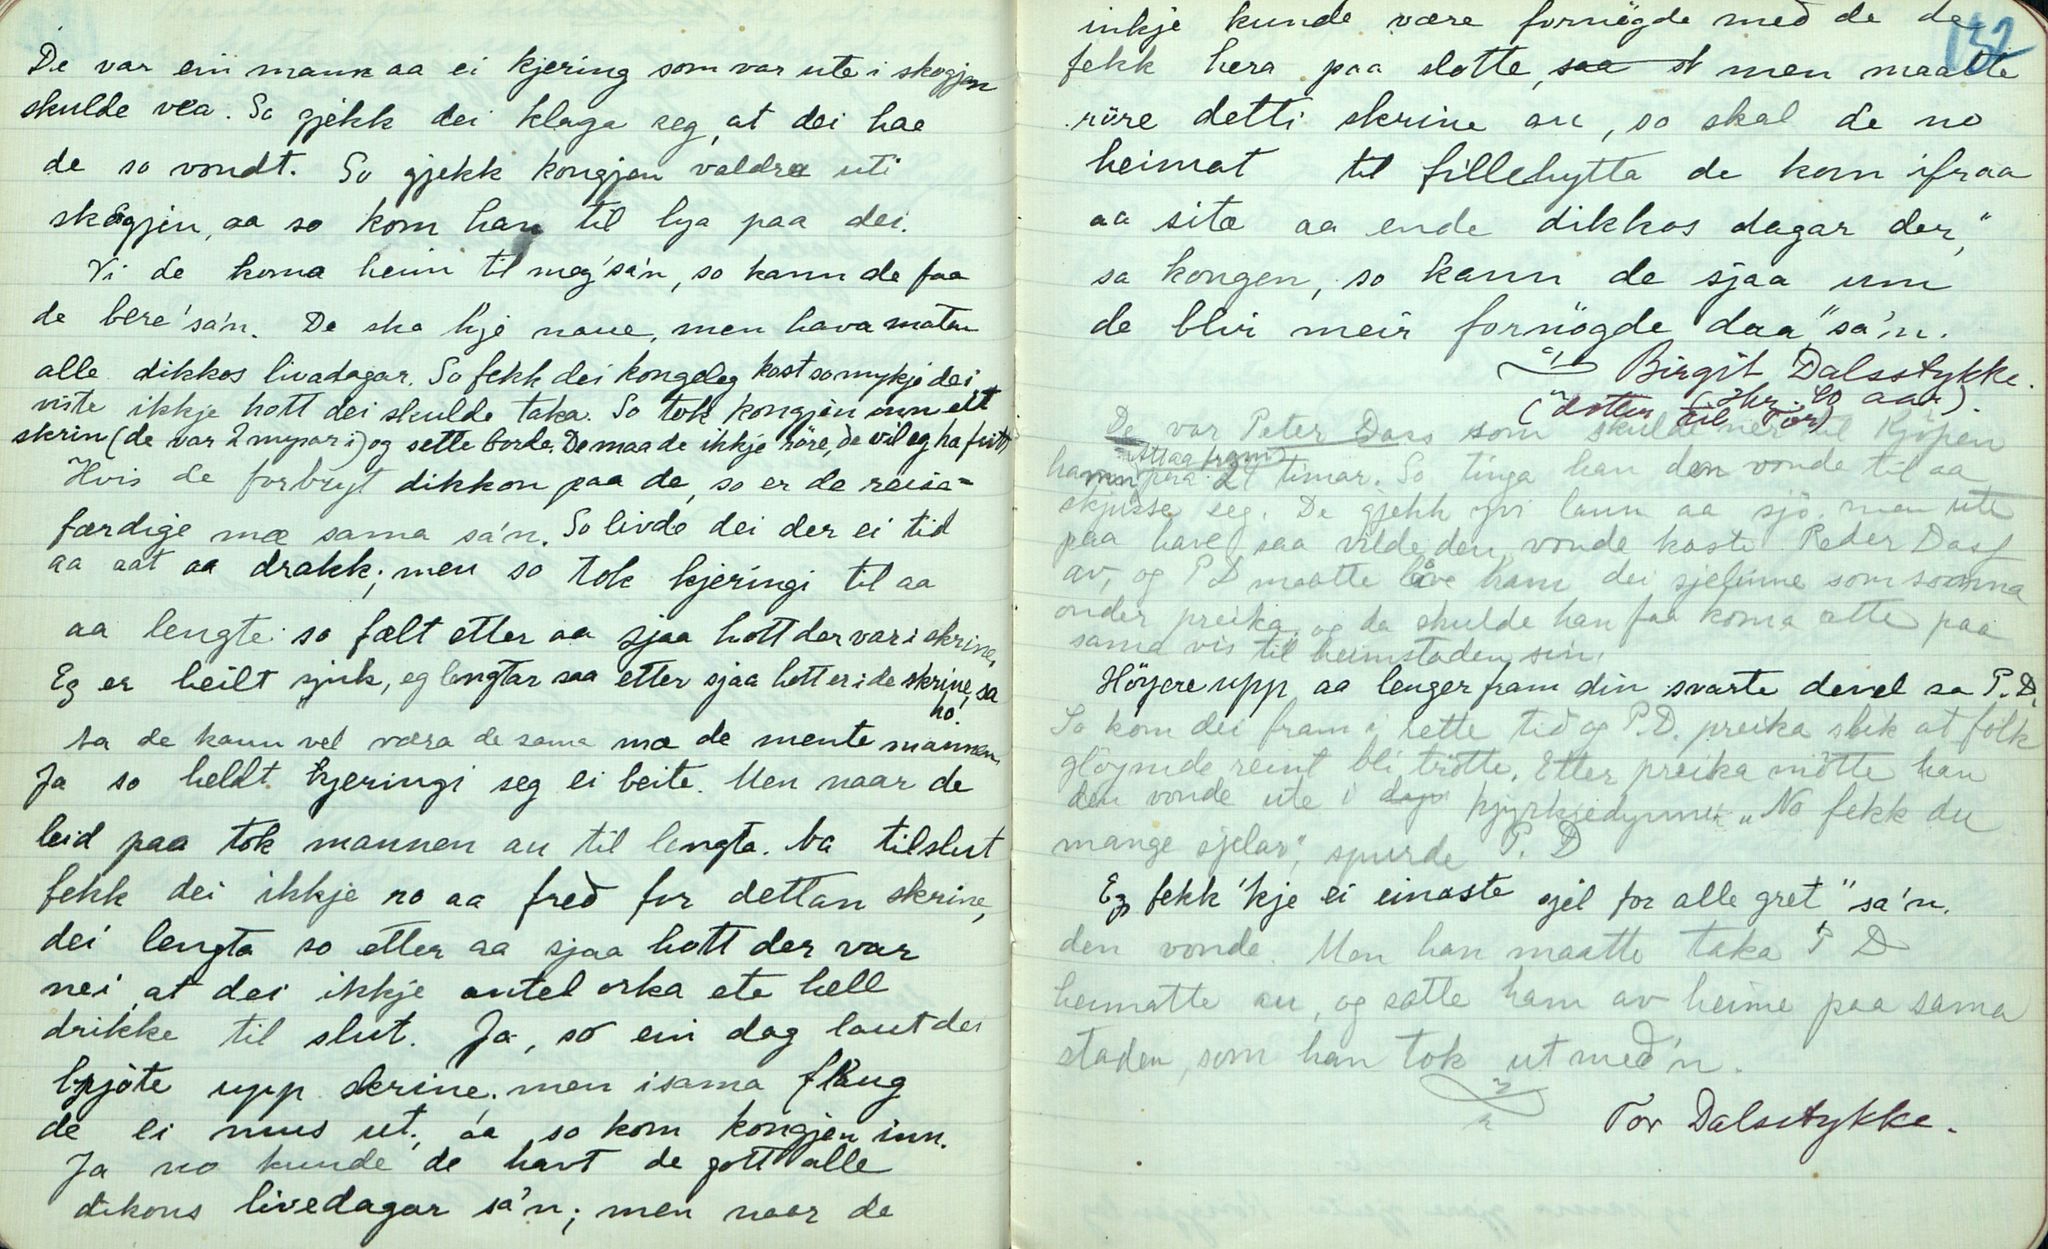 De var ein mann aa ei kjering som var ute i skogjen
skulde vea. So gjekk dei klaga seg, at dei hae
de so vondt. So gjekk kongjen valdra uti
skogjin, aa so kom han til lya paa dei.
Vi de koma heim til meg' sa'n, so kann de faa
de bere' sa'n. De ska kje naue, men hava maten
alle dikkos livadagar. So fekk dei kongeleg kost so mykje dei
viste ikkje hott dei skulde taka. So tok kongjen inn eit
skrin (de var 2 mysar i) og sette borde. De maa de ikkje röre, de vil eg ha fritt,
Hvis de forbryt dikkon paa de, so er de reise=
færdige mæ sama sa'n. So livde dei der ei tid
aa aat aa drakk; men so tok kjeringi til aa
aa lengte so fælt etter aa sjaa hott der var i skrine,
Eg er heilt sjuk, eg lengtar saa etter sjaa hott er i de skrine, sa
ho.
Aa de kann vel væra de sama mæ de mente mannen.
Ja so heldt kjeringi seg ei beite. Men naar de
leid paa tok mannen au til lengta. Aa tilslut
fekk dei ikkje ro aa fred for dettan skrine,
dei lengta so etter aa sjaa hott der var
nei, at dei ikkje antel orka ete hell
drikke til slut. Ja, so ein dag laut dei
brjote upp skrine, men i sama flaug
de ei mus ut, aa so kom kongjen inn.
Ja no kunde de havt de gott alle
dikons livedagar sa'n; men naar de
132
inkje kunde være fornögde med de de
fekk hera paa slotte, saa st men maatte
röre detti skrine au, so skal de no
heimat til fillehytta de kom ifraa
aa sitæ aa ende dikkos dagar der,"
sa kongen, so kann de sjaa um
de blir meir fornögde daa," sa'n.
Birgit Dalsstykke.
(Ikr. 60 aar).
(dotter til Tor)
De var Peter Dass som skulde ner til Kjöpen
hamn paa 24 timar. So tinga han den vonde til aa
skjusse seg. De gjekk yvi lann aa sjö, men ute
paa have saa vilde den vonde kaste Peder Dass
av, og P D maatte love ham dei sjelinne som somna
onder preika, og da skulde han faa koma atte paa
sama vis til heimstaden sin.
Höyere upp aa lenger fram din svarte devel sa P. D.
So kom dei fram i rette tid og P.D. preika slik at folk
glöymde reint bli trötte. Etter preika mötte han
den vonde ute i kjyrkjedynne „No fekk du
mange sjelar", spurde P. D
Eg fekk 'kje ei einaste sjel for alle gret" sa'n.
den vonde. Men han maatte taka P D
heimatte au, og sette ham av heime paa sama
staden, som han tok ut med'n.
Tor Dalsstykke.